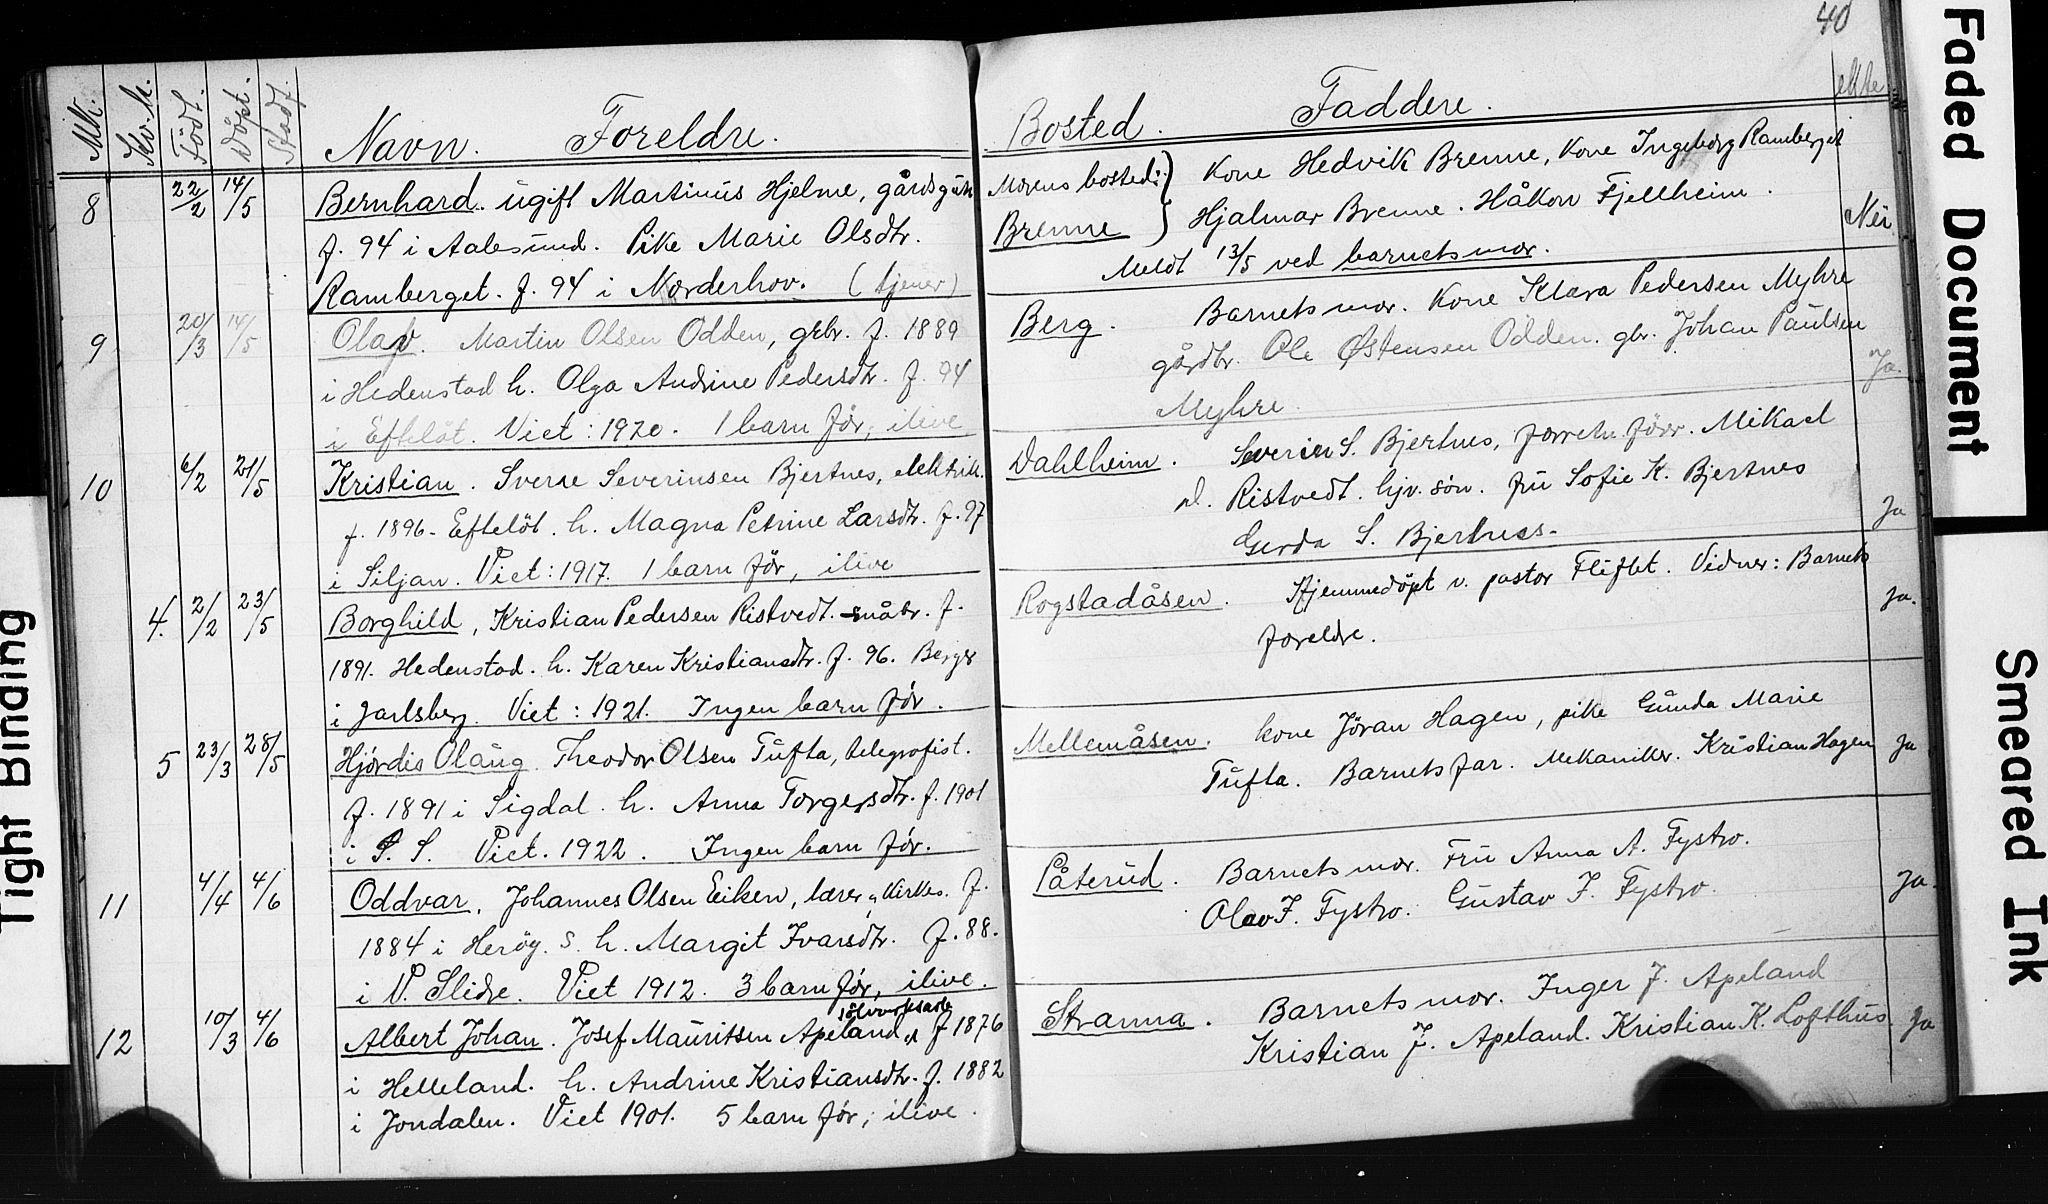 40
Mk. Kv.k. Födt. Döpt. Stadf. Navn. Foreldre.
8 22/2 14/5 Bernhard. ugift Martinus Hjelme, gårdsgut
f. 94 i Aalesund. Pike Marie Olsdtr.
Ramberget. f. 94 i Norderhov. (tjener)
9 20/3 14/5 Olav. Martin Olsen Odden, gbr. f. 1889
i Hedenstad h. Olga Andrine Pedersdtr. f. 94
i Efteløt. Viet: 1920. 1 barn før, ilive
10 6/2 21/5 Kristian. Sverre Severinsen Bjertnes, elektrik.
f. 1896 - Eftelöt. h. Magna Petrine Larsdtr. f. 97
i Siljan. Viet: 1917. 1 barn før, ilive
4. 2/2 23/5 Borghild, Kristian Pedersen Ristvedt. småbr. f.
1891. Hedenstad. h. Karen Kristiansdtr. f. 96. Berger
i Jarlsberg. Viet: 1921. Ingen barn før.
5 23/3 28/5 Hjørdis Olaug Theodor Olsen Tufta, telegrafist.
f. 1891 i Sigdal. h. Anna Torgersdtr. f. 1901
i S. S. Viet. 1922. Ingen barn før.
11 4/4 4/6 Oddvar, Johannes Olsen Eiken, lærer, kirkes. f.
1884 i Herøy. S. h. Margit Ivarsdtr. f. 88.
i V. Slidre. Viet 1912. 3 barn før, ilive.
sølvverksarb
12 10/3 4/6 Albert Johan. Josef Mauritsen Apeland, f 1876
i Helleland. h. Andrine Kristiansdtr. f. 1882
i Jondalen. Viet 1901. 5 barn før, ilive.
Bosted. Faddere. ekte
Morens bosted: } Kone Hedvik Brenne, Kone Ingeborg Ramberget
Brenne } Hjalmar Brenne. Håkon Fjellheim. Nei
Meldt 13/5 ved barnets mor.
Berg. Barnets mor. Kone Klara Pedersen Myhre
gårdbr. Ole Østensen Odden. gbr. Johan Paulsen
Myhre. Ja.
Dahlheim. Severin S. Bjertnes, forretn. förr. Mikael
Ristvedt. hjv. søn. fru Sofie K. Bjertnes
Gerda S. Bjertness. Ja
Rogstadåsen. Hjemmedöpt v. pastor Fliflet. Vidner: Barnets
foreldre. Ja.
Mellemåsen. kone Jöran Hagen, pike Gunda Marie
Tufta. Barnets far. Mekaniker. Kristian Hagen Ja
Påterud. Barnets mor. Fru Anna A. Fystro.
Olav J. Fystro. Gustav J. Fystro. Ja.
Stranna. Barnets mor. Inger J. Apeland
Kristian J. Apeland. Kristian K. Lofthus. Ja
Faded Document
Smeared Ink
Tight Binding